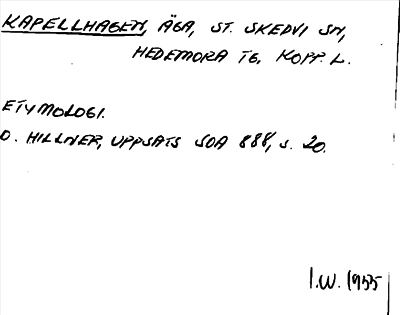 KAPELLHAGEN, ÄGA, ST. SKEDVI SN,
HEDEMORA TG, KOPP. L.
ETYMOLOGI.
O. HILLNER, UPPSATS SOA 888, S. 20.
I.W. 1955